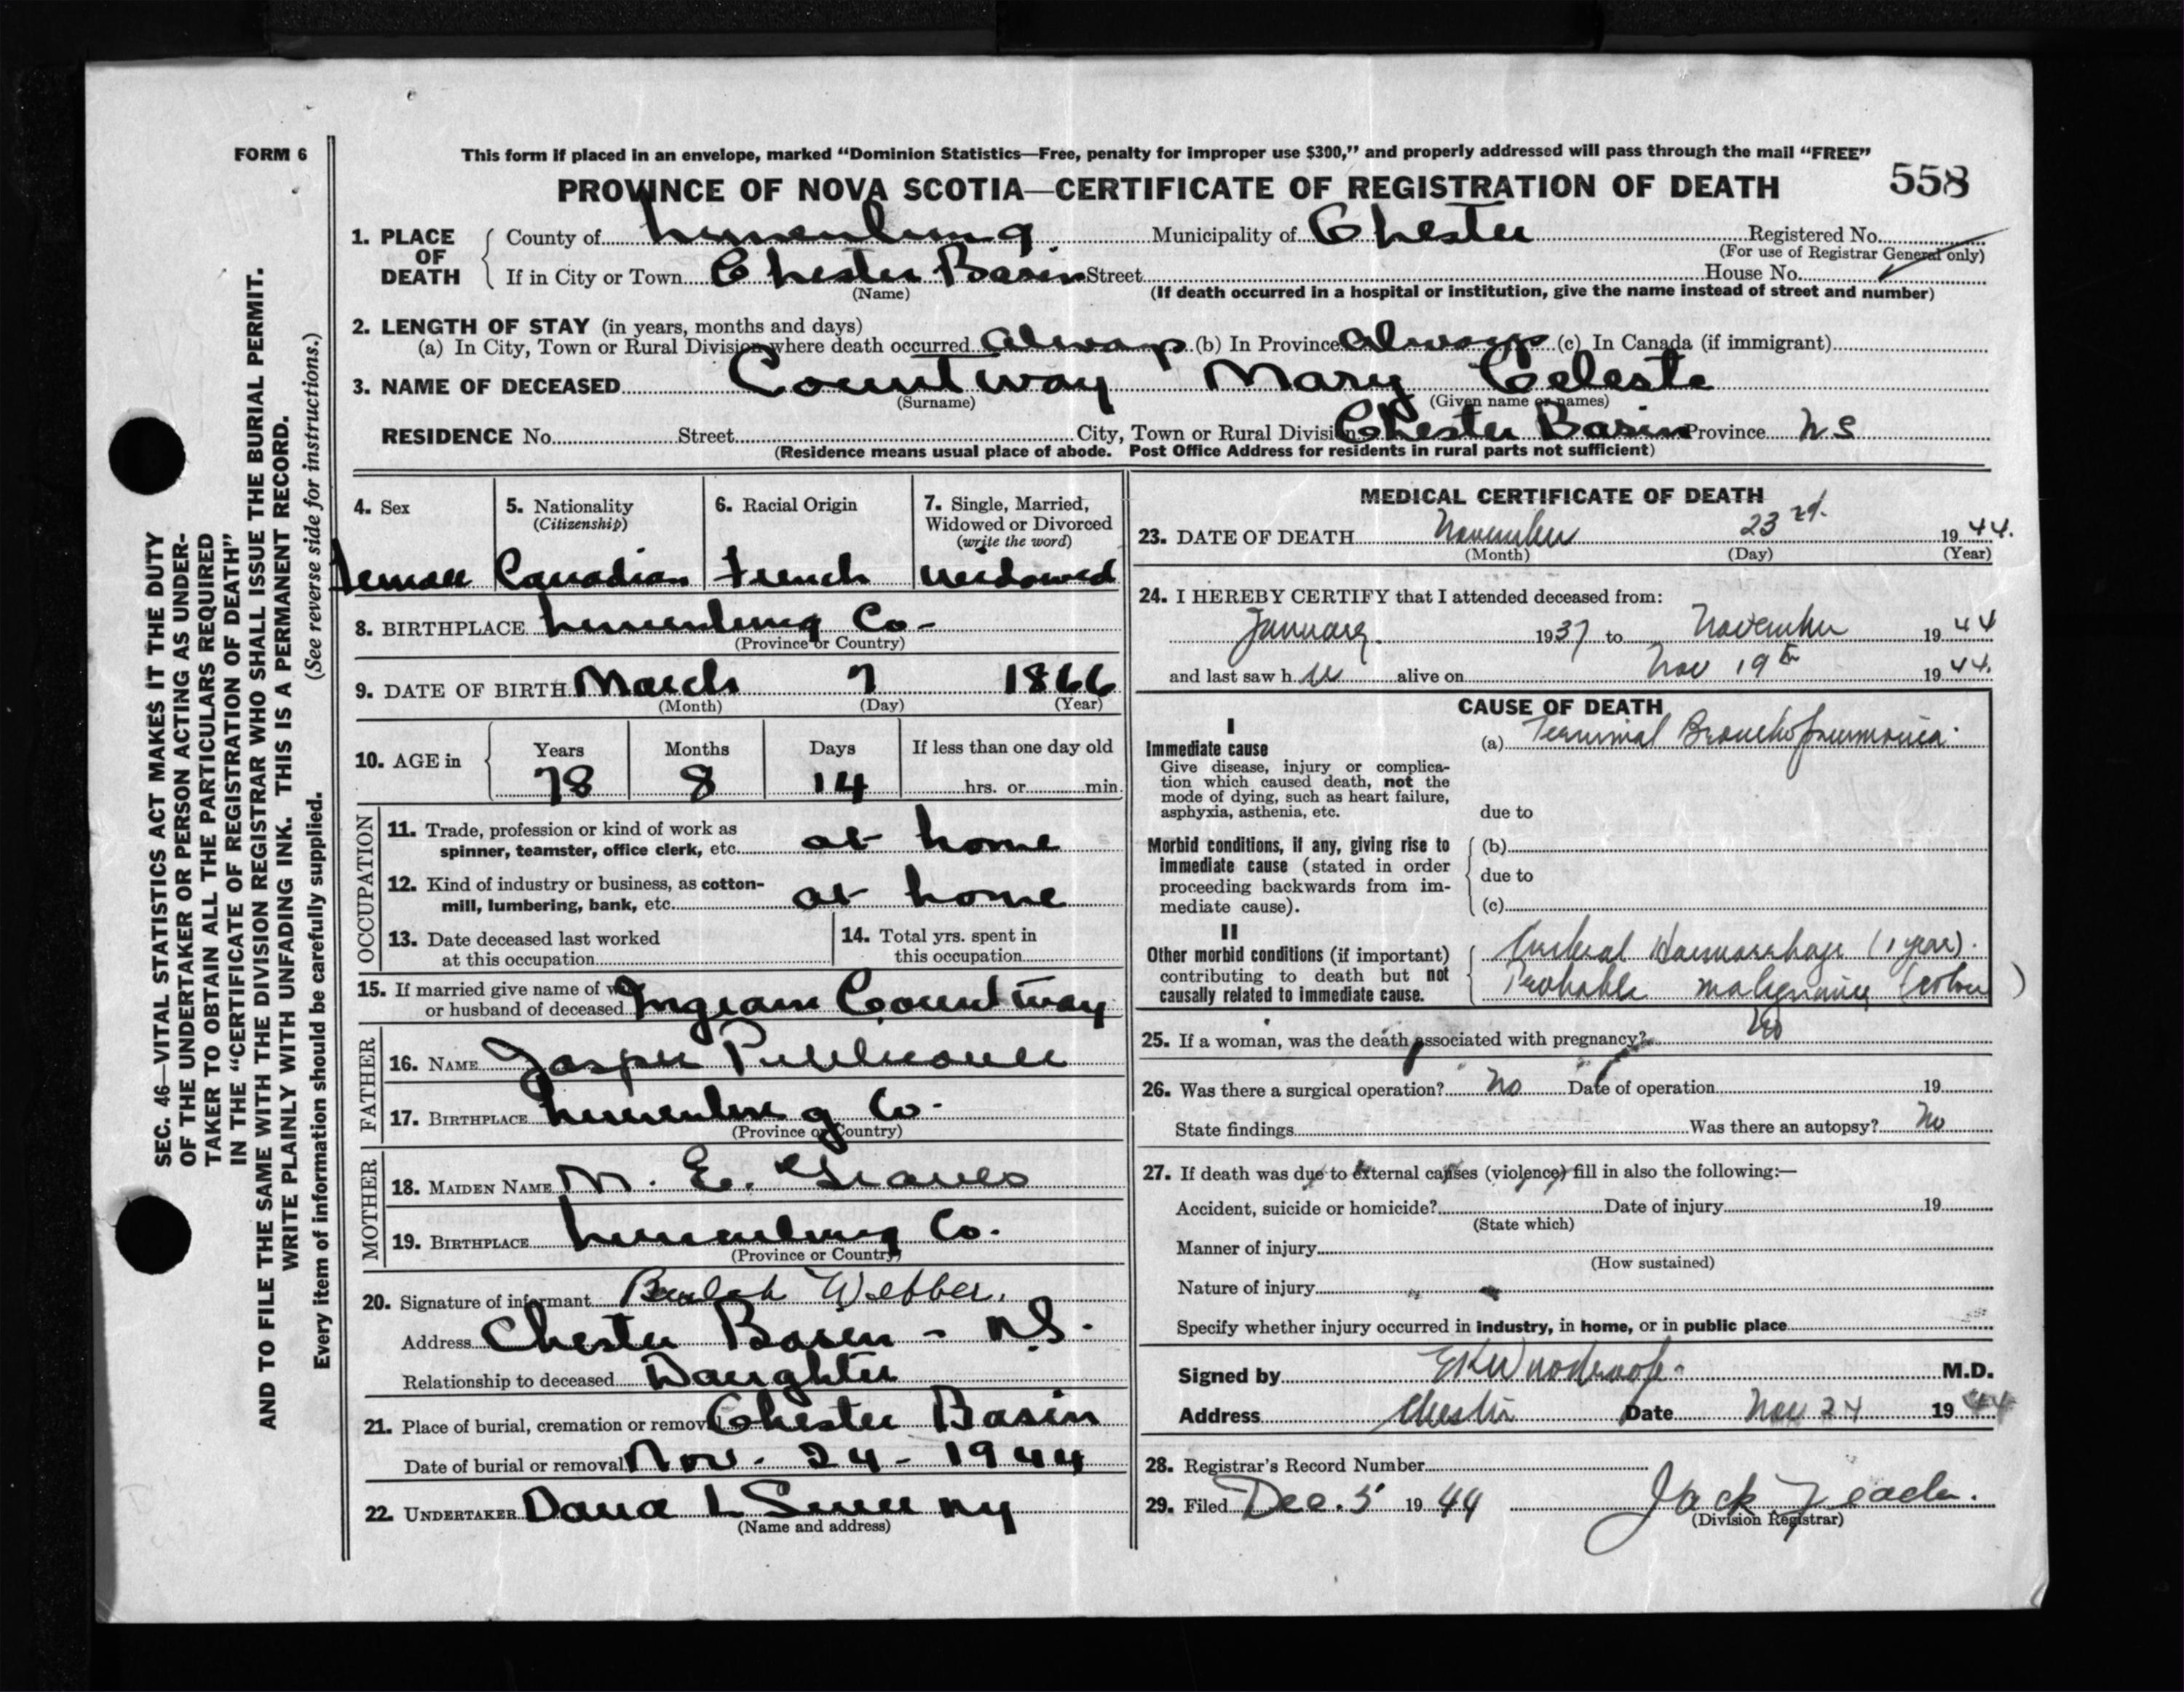 FORM 6
This form if placed in an envelope, marked “Dominion Statistics—Free, penalty for improper use $300,” and properly addressed will pass through the mail “FREE”
PROVINCE OF NOVA SCOTIA—CERTIFICATE OF REGISTRATION OF DEATH
558
1. PLACE OF DEATH
County of Lunenburg Municipality of Chester Registered No.
(For use of Registrar General only)
If in City or Town Chester Basin Street House No.
(Name) (If death occurred in a hospital or institution, give the name instead of street and number)
2. LENGTH OF STAY (in years, months and days)
(a) In City, Town or Rural Division where death occurred always (b) In Province always (c) In Canada (if immigrant)
3. NAME OF DECEASED Countway Mary Celeste
(Surname) (Given name or names)
RESIDENCE No. Street City, Town or Rural Division Chester Basin Province N S
(Residence means usual place of abode. Post Office Address for residents in rural parts not sufficient)
4. Sex
Female
5. Nationality
(Citizenship)
Canadian
6. Racial Origin
French
7. Single, Married,
Widowed or Divorced
(write the word)
Widowed
8. BIRTHPLACE Lunenburg Co-
(Province or Country)
9. DATE OF BIRTH March 7 1866
(Month) (Day) (Year)
10. AGE in
Years Months Days If less than one day old
78 8 14 hrs. or min.
OCCUPATION
11. Trade, profession or kind of work as
spinner, teamster, office clerk, etc. at home
12. Kind of industry or business, as cotton-
mill, lumbering, bank, etc. at home
13. Date deceased last worked
at this occupation
14. Total yrs. spent in
this occupation
15. If married give name of
or husband of deceased Ingram Countway
FATHER
16. NAME Jasper
17. BIRTHPLACE Lunenburg Co-
(Province or Country)
MOTHER
18. MAIDEN NAME M. E. Graves
19. BIRTHPLACE Lunenburg Co.
(Province or Country)
20. Signature of informant Beulah Webber.
Address Chester Basin - N.S.
Relationship to deceased Daughter
21. Place of burial, cremation or removal Chester Basin
Date of burial or removal Nov - 24 - 1944
22. UNDERTAKER Dana L Sweeny
(Name and address)
MEDICAL CERTIFICATE OF DEATH
23. DATE OF DEATH November 23rd. 1944.
(Month) (Day) (Year)
24. I HEREBY CERTIFY that I attended deceased from:
January. 1937 to November 1944
and last saw h er alive on Nov 19th 1944.
CAUSE OF DEATH
I
Immediate cause
Give disease, injury or complica-
tion which caused death, not the
mode of dying, such as heart failure,
asphyxia, asthenia, etc.
(a) Terminal Bronchopneumonia.
due to
Morbid conditions, if any, giving rise to
immediate cause (stated in order
proceeding backwards from im-
mediate cause).
(b)
due to
(c)
II
Other morbid conditions (if important)
contributing to death but not
causally related to immediate cause.
Cerebral Haemorrhage (1 year).
Probable malignancy (colon)
25. If a woman, was the death associated with pregnancy? No
26. Was there a surgical operation? No Date of operation 19
State findings Was there an autopsy? No
27. If death was due to external causes (violence) fill in also the following:—
Accident, suicide or homicide? Date of injury 19
(State which)
Manner of injury
(How sustained)
Nature of injury
Specify whether injury occurred in industry, in home, or in public place
Signed by M.D.
Address Chester Date Nov 24 1944
28. Registrar's Record Number
29. Filed Dec. 5 1944 Jack
(Division Registrar)
SEC. 46—VITAL STATISTICS ACT MAKES IT THE DUTY
OF THE UNDERTAKER OR PERSON ACTING AS UNDER-
TAKER TO OBTAIN ALL THE PARTICULARS REQUIRED
IN THE “CERTIFICATE OF REGISTRATION OF DEATH”
AND TO FILE THE SAME WITH THE DIVISION REGISTRAR WHO SHALL ISSUE THE BURIAL PERMIT.
WRITE PLAINLY WITH UNFADING INK. THIS IS A PERMANENT RECORD.
Every item of information should be carefully supplied. (See reverse side for instructions.)